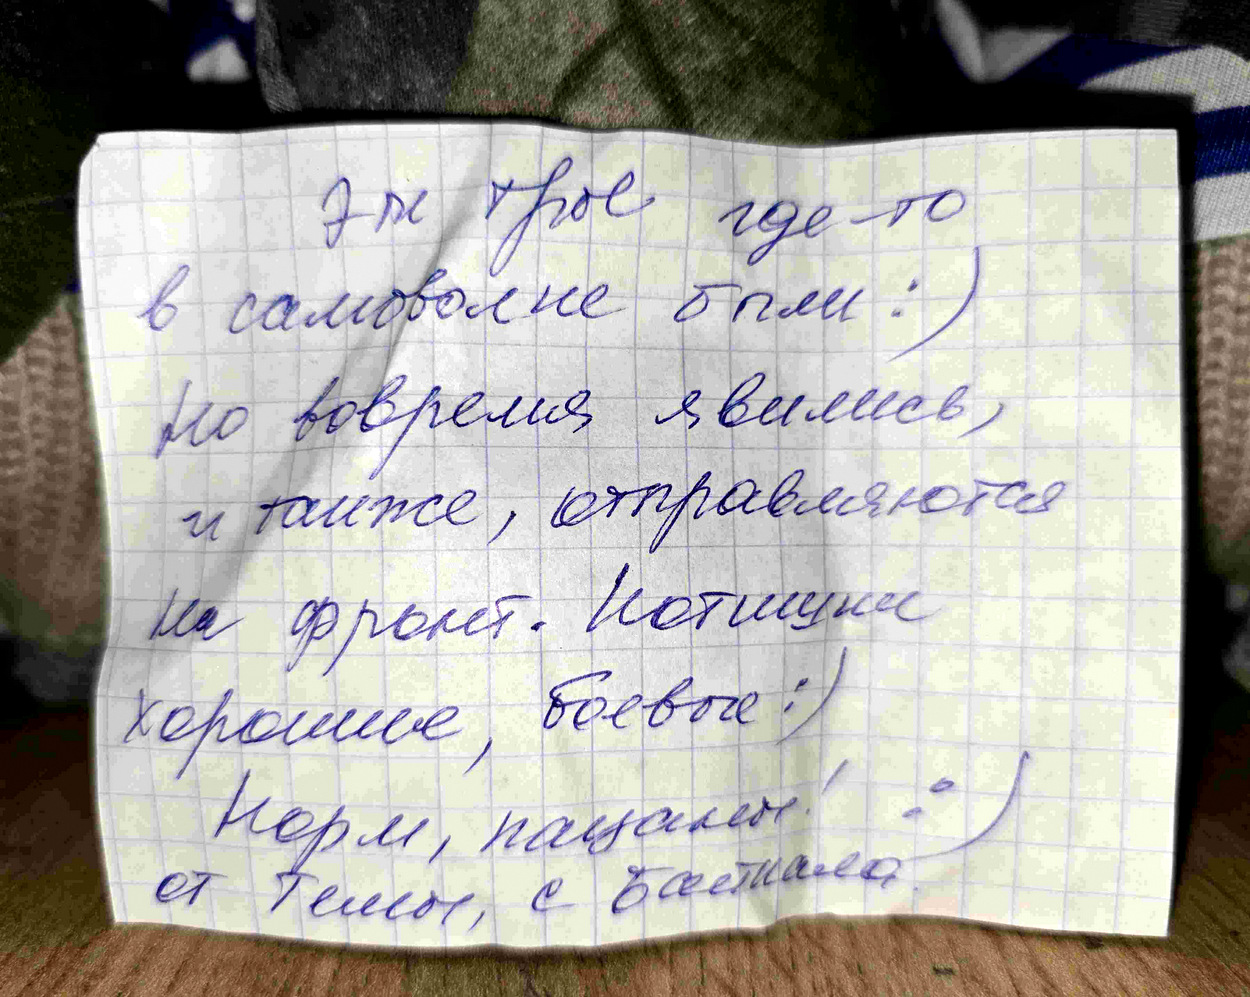 Эти трое где-то
в самоволке были :)
Но вовремя явились,
и также, отправляются
на фронт. Котишки
хорошие, боевые :)
Норм, пацаны! :)
от Темы, с Байкала.